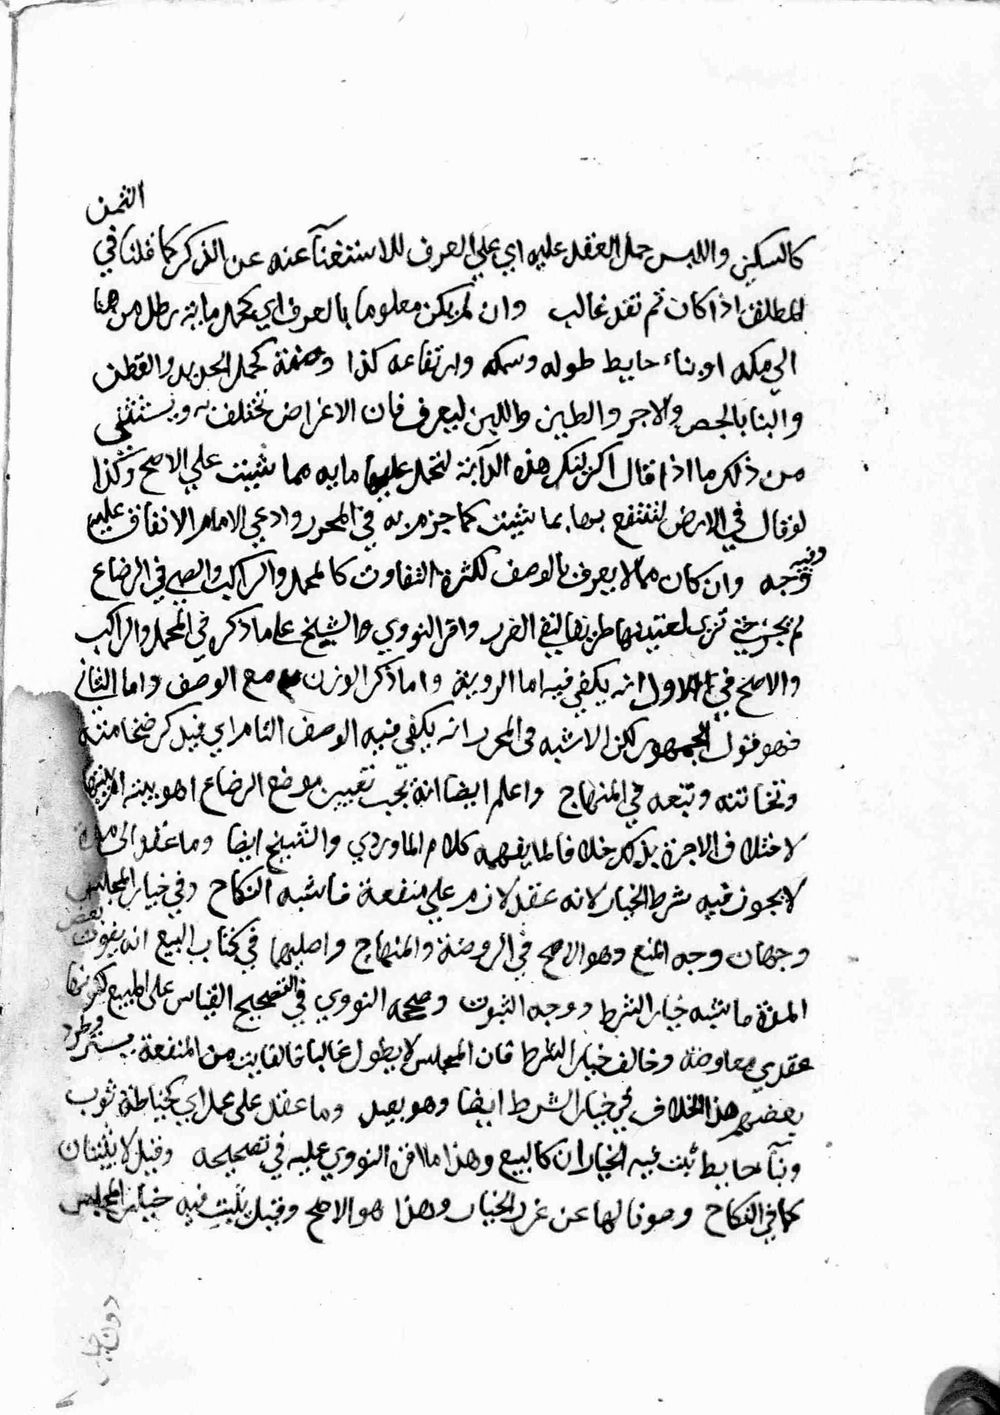 الثمن
كالسكني واللبس حمل العقد عليه اي علي العرف للاستغنآ عنه عن الذكر كما قلنا في
المطلق اذا كان ثم نقد غالب وان لم يكن معلوما بالعرف اي كحمل ماية رطل من هنا
الي مكه او بناء حايط طوله وسمكه وارتفاعه كذا وصفة كحمل الحديد والقطن
والبنا بالجص والاجر والطين واللبن ليعرف فان الاغراض تختلف به ويستثني
من ذلك ما اذا قال اكريتك هذه الدابة لتحمل عليها مايه مما شيت علي الاصح وكذا
لو قال في الارض لتنتفع بها بما شيت كما جزم به في المحرر وادعي الامام الاتفاق عليه
وفيه
وجه وان كان مما لا يعرف بالوصف لكثرة التفاوت كالمحمل والراكب والصبي في الرضاع
لم يجز حتي تري لتعينها طريقا لنفي الغرر واقر النووي الشيخ علي ما ذكره في المحمل والراكب
والاصح في الاول انه يكفي فيه اما الروية واما ذكر الوزن مع الوصف واما الثاني
فهو قول الجمهور لكن الاشبه في المحرر انه يكفي فيه الوصف التام اي فيذكر ضخامته
ونحافته وتبعه في المنهاج واعلم ايضا انه يجب تعيين موضع الرضاع اهو بيته ام بيتها
لاختلاف الاجرة بذلك خلافا لما يفهمه كلام الماوردي والشيخ ايضا وما عقد الي مدة
لا يجوز فيه شرط الخيار لانه عقد لازم علي منفعة فاشبه النكاح وفي خيار المجلس
وجهان وجه المنع وهو الاصح في الروضة والمنهاج واصليهما في كتاب البيع انه يفوت بعض
المدة فاشبه خيار الشرط ووجه الثبوت وصححه النووي في التصحيح القياس علي المبيع لكونها
عقدي معاوضة وخالف خيار الشرط فان المجلس لا يطول غالبا فالفايت من المنفعة يسير وطرد
بعضهم هذا الخلاف في خيار الشرط ايضا وهو بعيد وما عقد علي عمل اي كخياطة ثوب
وبنآ حايط ثبت فيه الخياران كالبيع وهذا ما اقره النووي عليه في تصحيحه وقيل لا يثبتان
كما في النكاح وصونا لها عن غرر الخيار وهذا هو الاصح وقيل يثبت فيه خيار المجلس
دون خيار